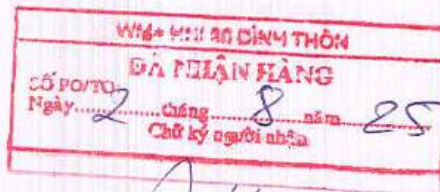 WM+ HNI 30 ĐÌNH THÔN
ĐÃ NHẬN HÀNG
SỐ PO/TO
Ngày 2 tháng 8 năm 25
Chữ ký người nhận